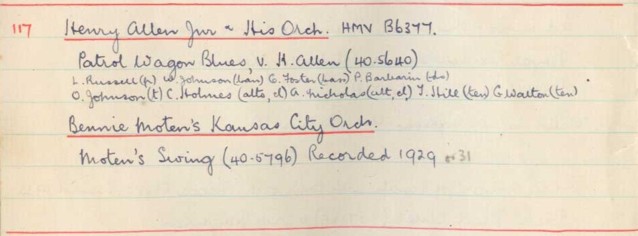 117 Henry Allen Jnr & His Orch. HMV B6377.
Patrol Wagon Blues, V. H. Allen (40-5640)
L. Russell (p) W. Johnson (ban) G. Foster (bas) P. Barbarin (ds)
O. Johnson (t) C. Holmes (alto, cl) A. Nicholas (alt, cl) T. Hill (ten) G Walton (ten)
Bennie Moten's Kansas City Orch.
Moten's Swing (40-5796) Recorded 1929 or 31